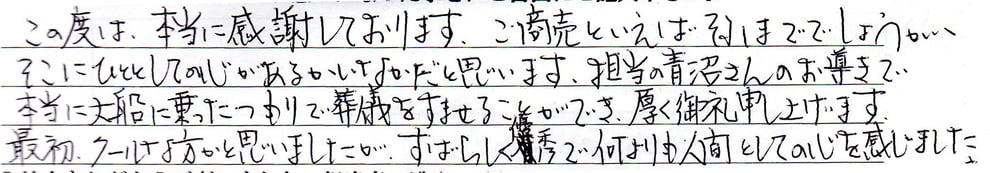 この度は、本当に感謝しております。ご商売といえばそれまででしょうが、
そこにひととしての心があるかいなかだと思います。担当の青沼さんのお導きで
本当に大船に乗ったつもりで葬儀をすませることができ、厚く御礼申し上げます。
最初、クールな方かと思いましたが、すばらしく優秀で何よりも人間としての心を感じました